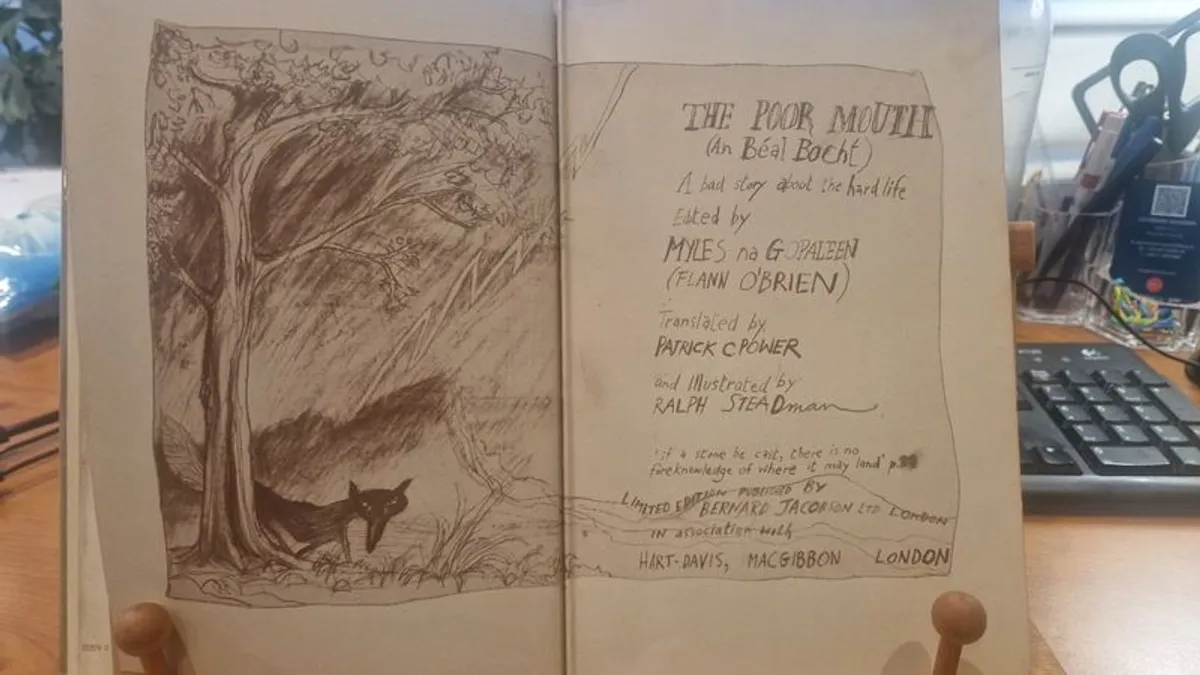 THE POOR MOUTH
(An Béal Bocht)
A bad story about the hard life
Edited by
MYLES na GOPALEEN
(FLANN O'BRIEN)
Translated by
PATRICK C POWER
and Illustrated by
RALPH STEADman
'if a stone be cast, there is no
foreknowledge of where it may land' p.
LIMITED EDITION PUBLISHED BY
BERNARD JACOBSON LTD LONDON
IN association with
HART-DAVIS, MACGIBBON LONDON